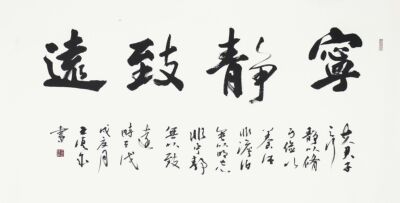 寧靜致遠
夫君子
之行
靜以脩
身儉以
養德
非澹泊
無以明志
非寧靜
無以致
遠
書